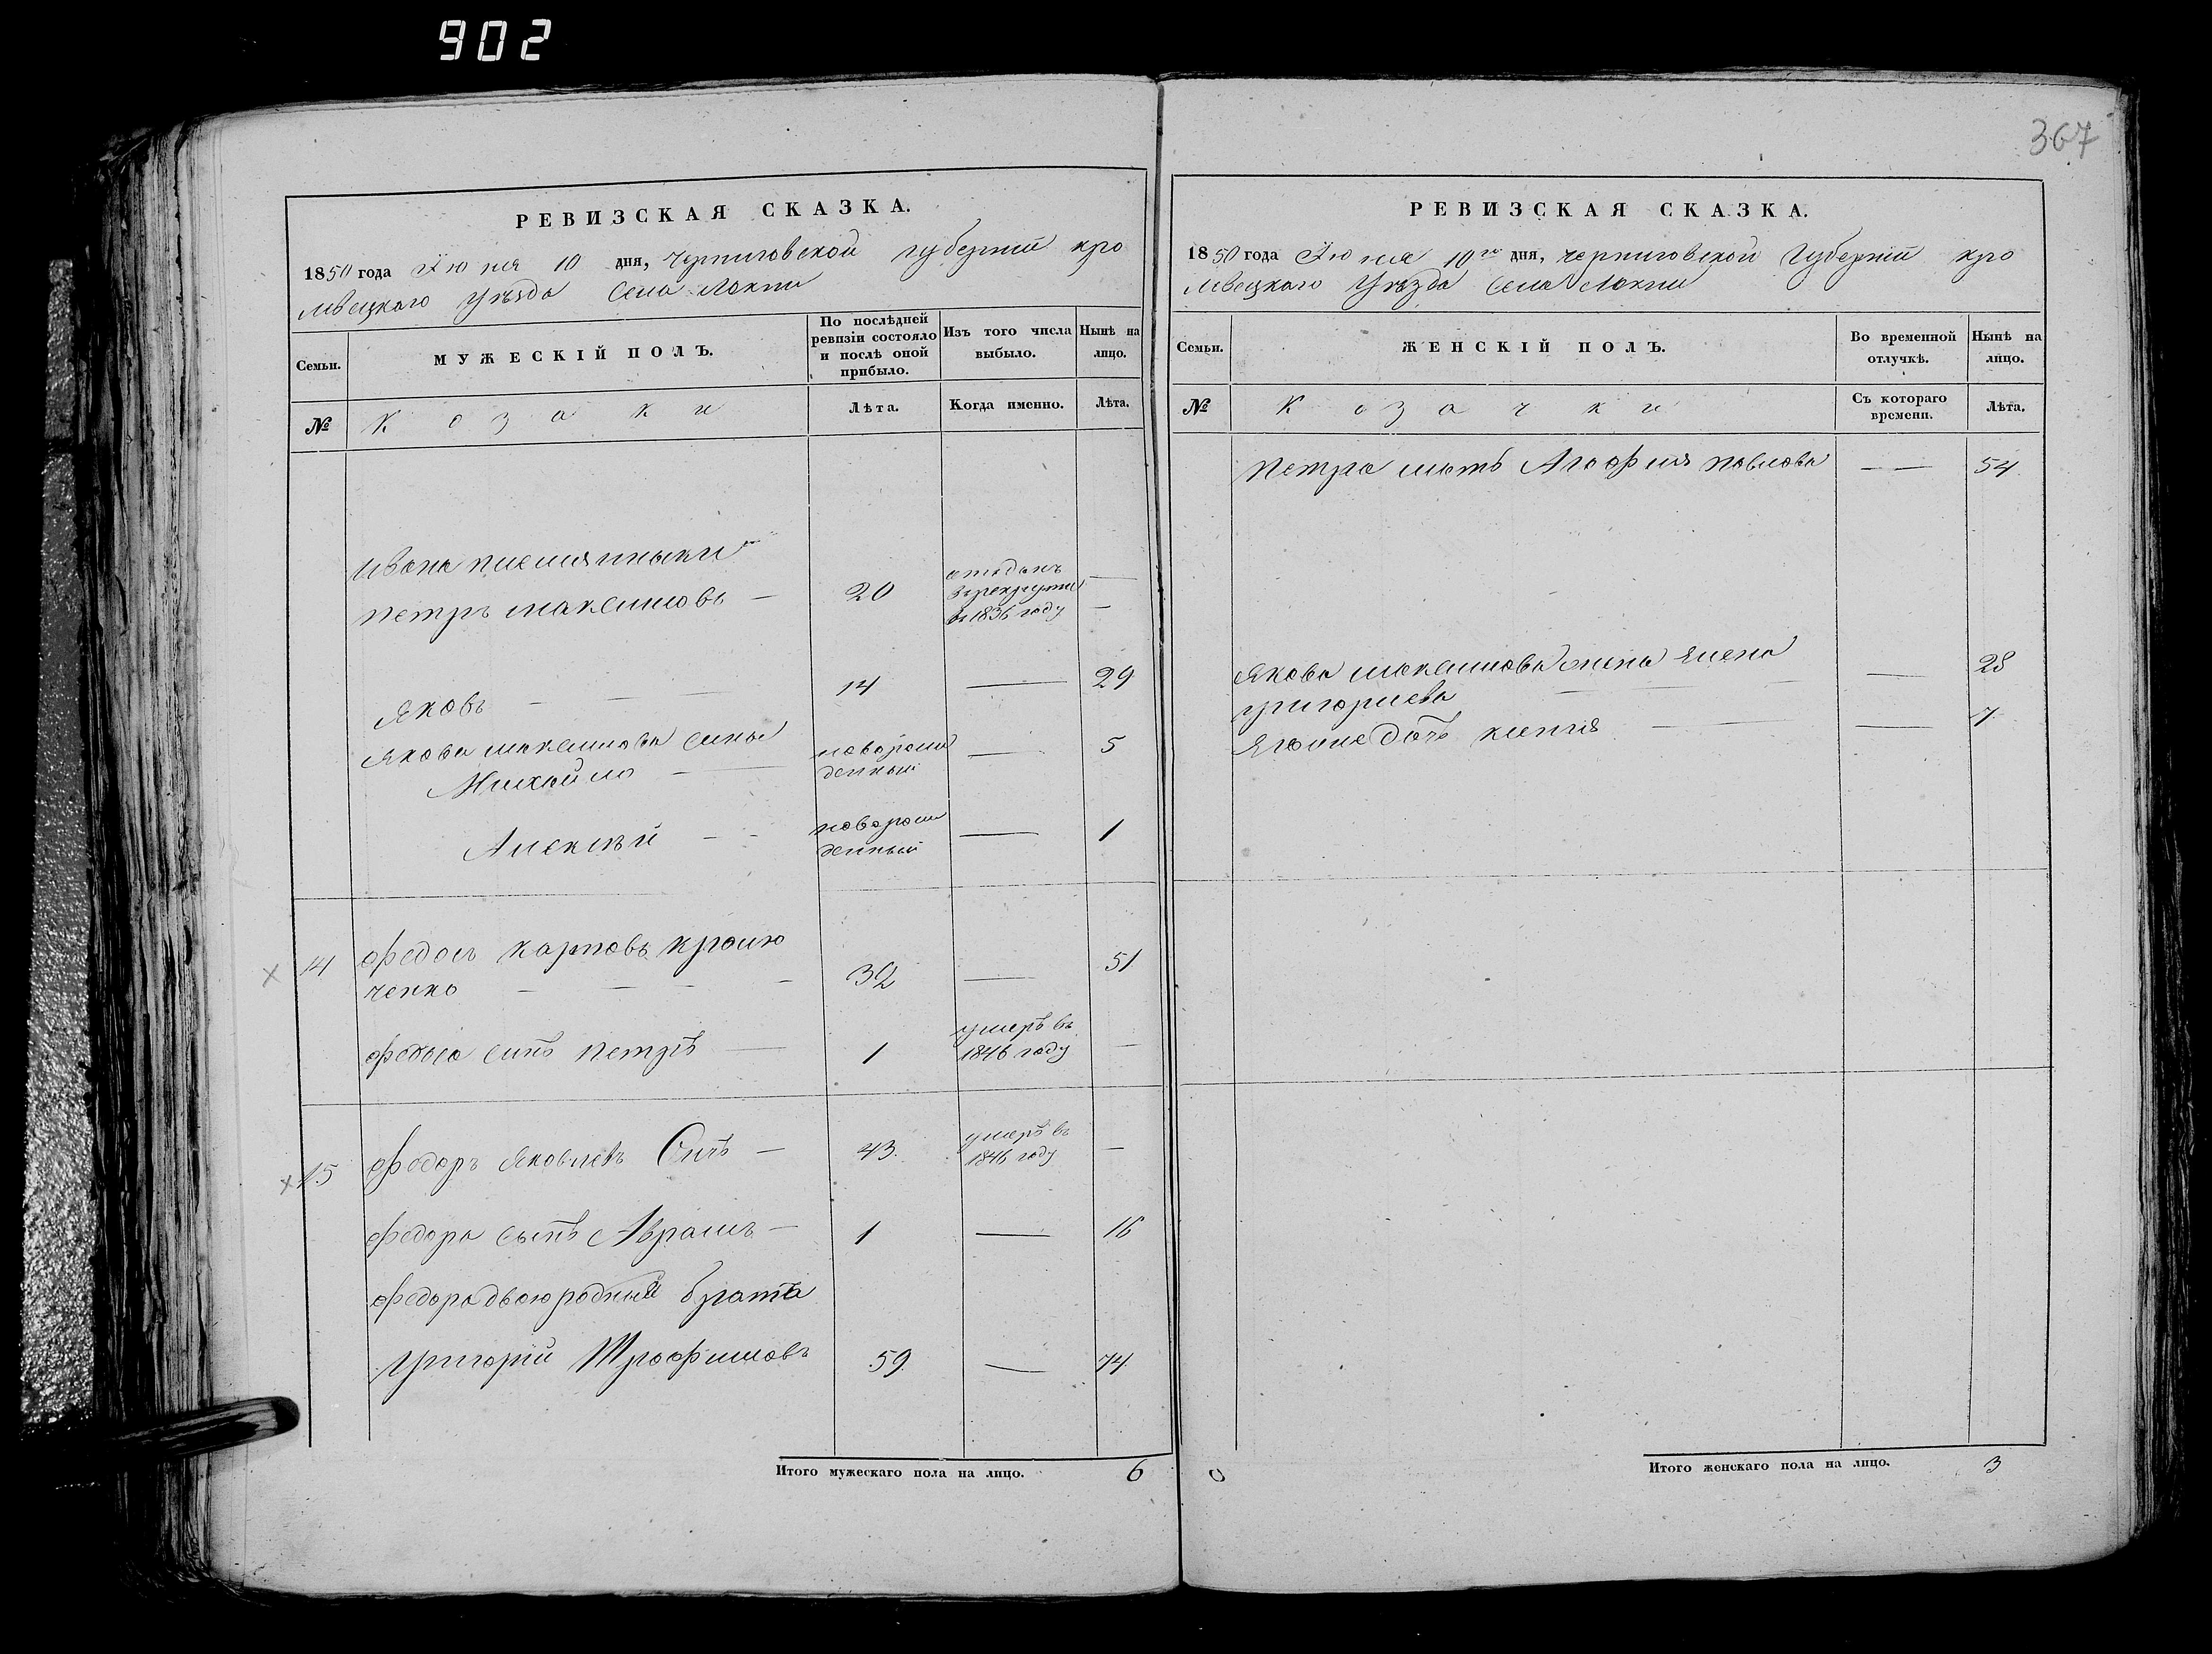 902
367
РЕВИЗСКАЯ СКАЗКА.
1850 года Июня 10 дня, Черниговской губерніи кро
лѣвецкого Уѣзда Села Локни
Семьи.
МУЖЕСКІЙ ПОЛЪ.
По послѣдней ревизіи состояло и послѣ оной прибыло.
Изъ того числа выбыло.
Нынѣ на лицо.
№
Козаки
Лѣта.
Когда именно.
Лѣта.
Ивана племянныки
Петръ Максимовъ — 20 отданъ
в рекруты —
въ 1836 году —
Яковъ — — — 14 — 29
Якова Максимова сыны
Михайло — новорож
денный — 5
Алексѣй — — новорож
денный — 1
14 Федосъ Карповъ Кравю
ченко — — — — 32 — 51
Федоса сынъ Петръ — 1 умеръ въ
1846 году —
15 Федоръ Яковлевъ — 43. умеръ въ
1846 году —
Федора сынъ Аврамъ — 1 — 16
Федора двоюродный братъ
Григорій Трофимовъ 59. — 74
Итого мужескаго пола на лицо. 6
РЕВИЗСКАЯ СКАЗКА.
1850 года Июня 10го дня, Черниговской Губерніи кро
лѣвецкаго Уѣзда Села Локни
Семьи.
ЖЕНСКІЙ ПОЛЪ.
Во временной отлучкѣ.
Нынѣ на лицо.
№
Козачки
Съ котораго времени.
Лѣта.
Петра мать Агафия Павлова — — 54
Якова Максимова жена Елена
Григориева — — — 28
Его дочь Ксенія — — — 7
Итого женскаго пола на лицо. 3